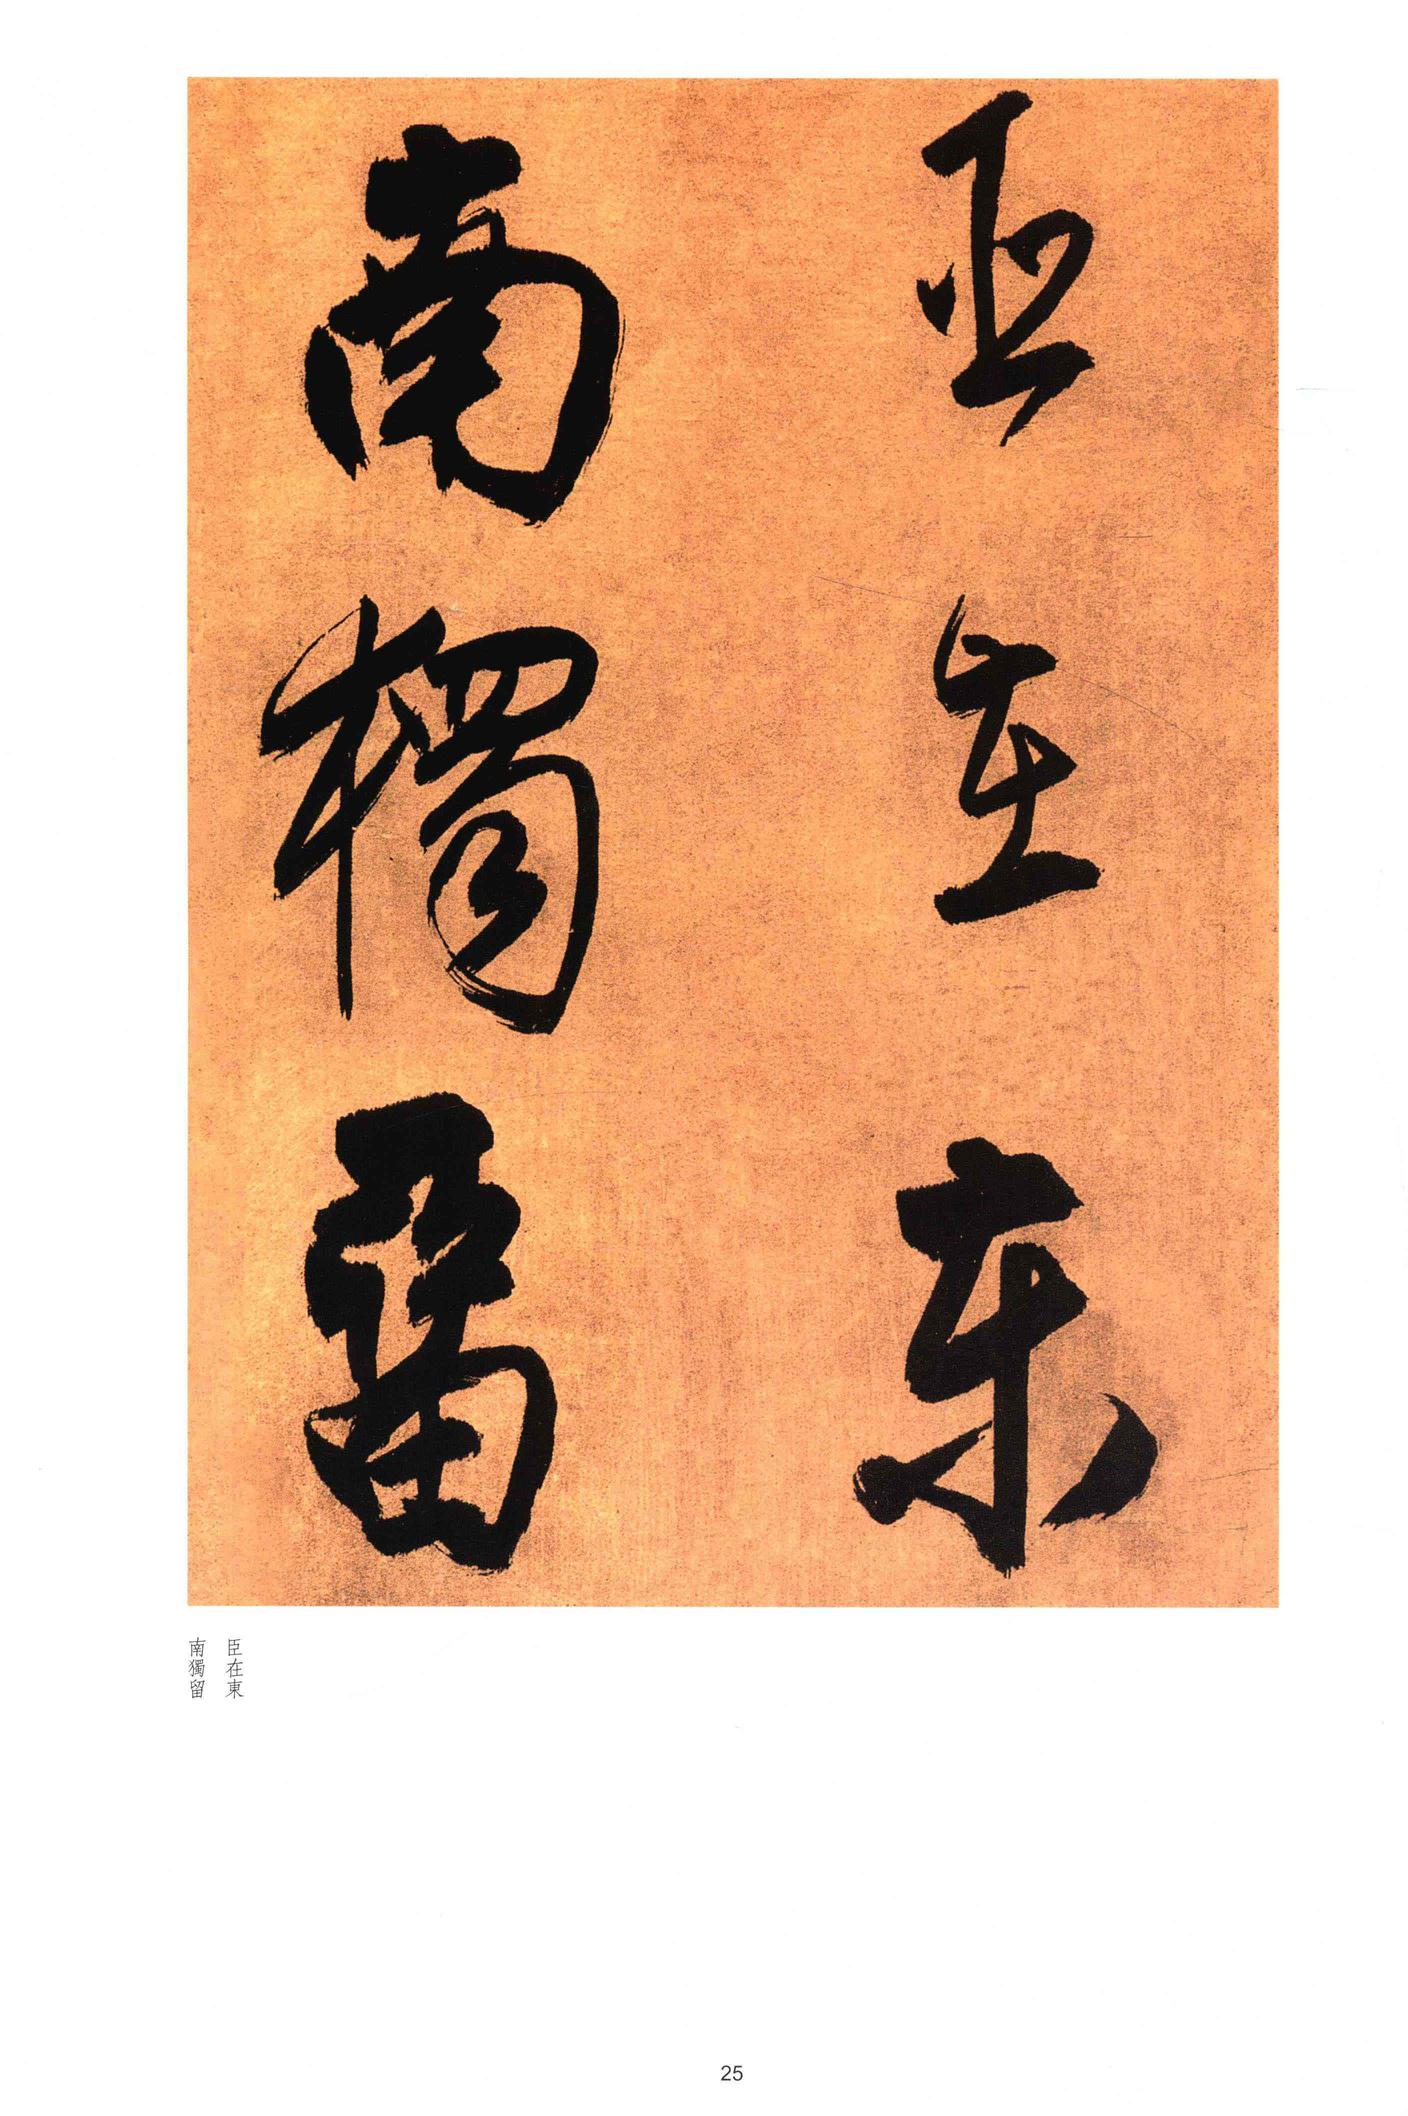 臣在東
南獨留
臣在東
南獨留
25